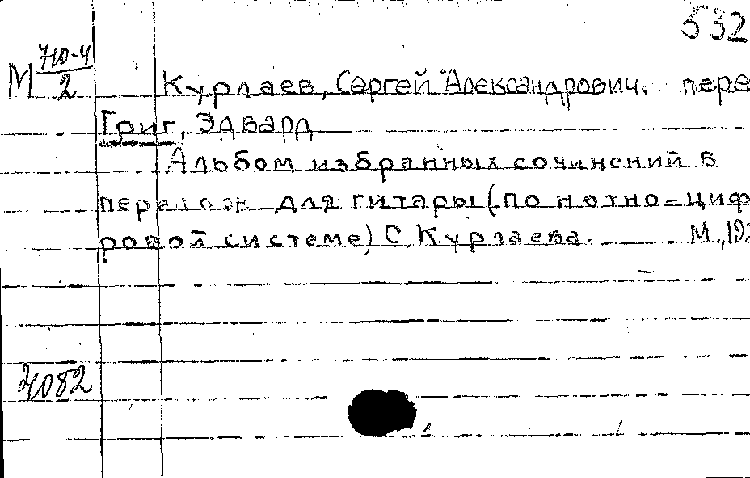 532
М 710-4/2
Курлаев, Сергей Александрович. пере
Григ, Эдвард
Альбом избранных сочинений в
перелож для гитары (по нотно-циф
ровой системе) С Курлаева. М., 19
4082